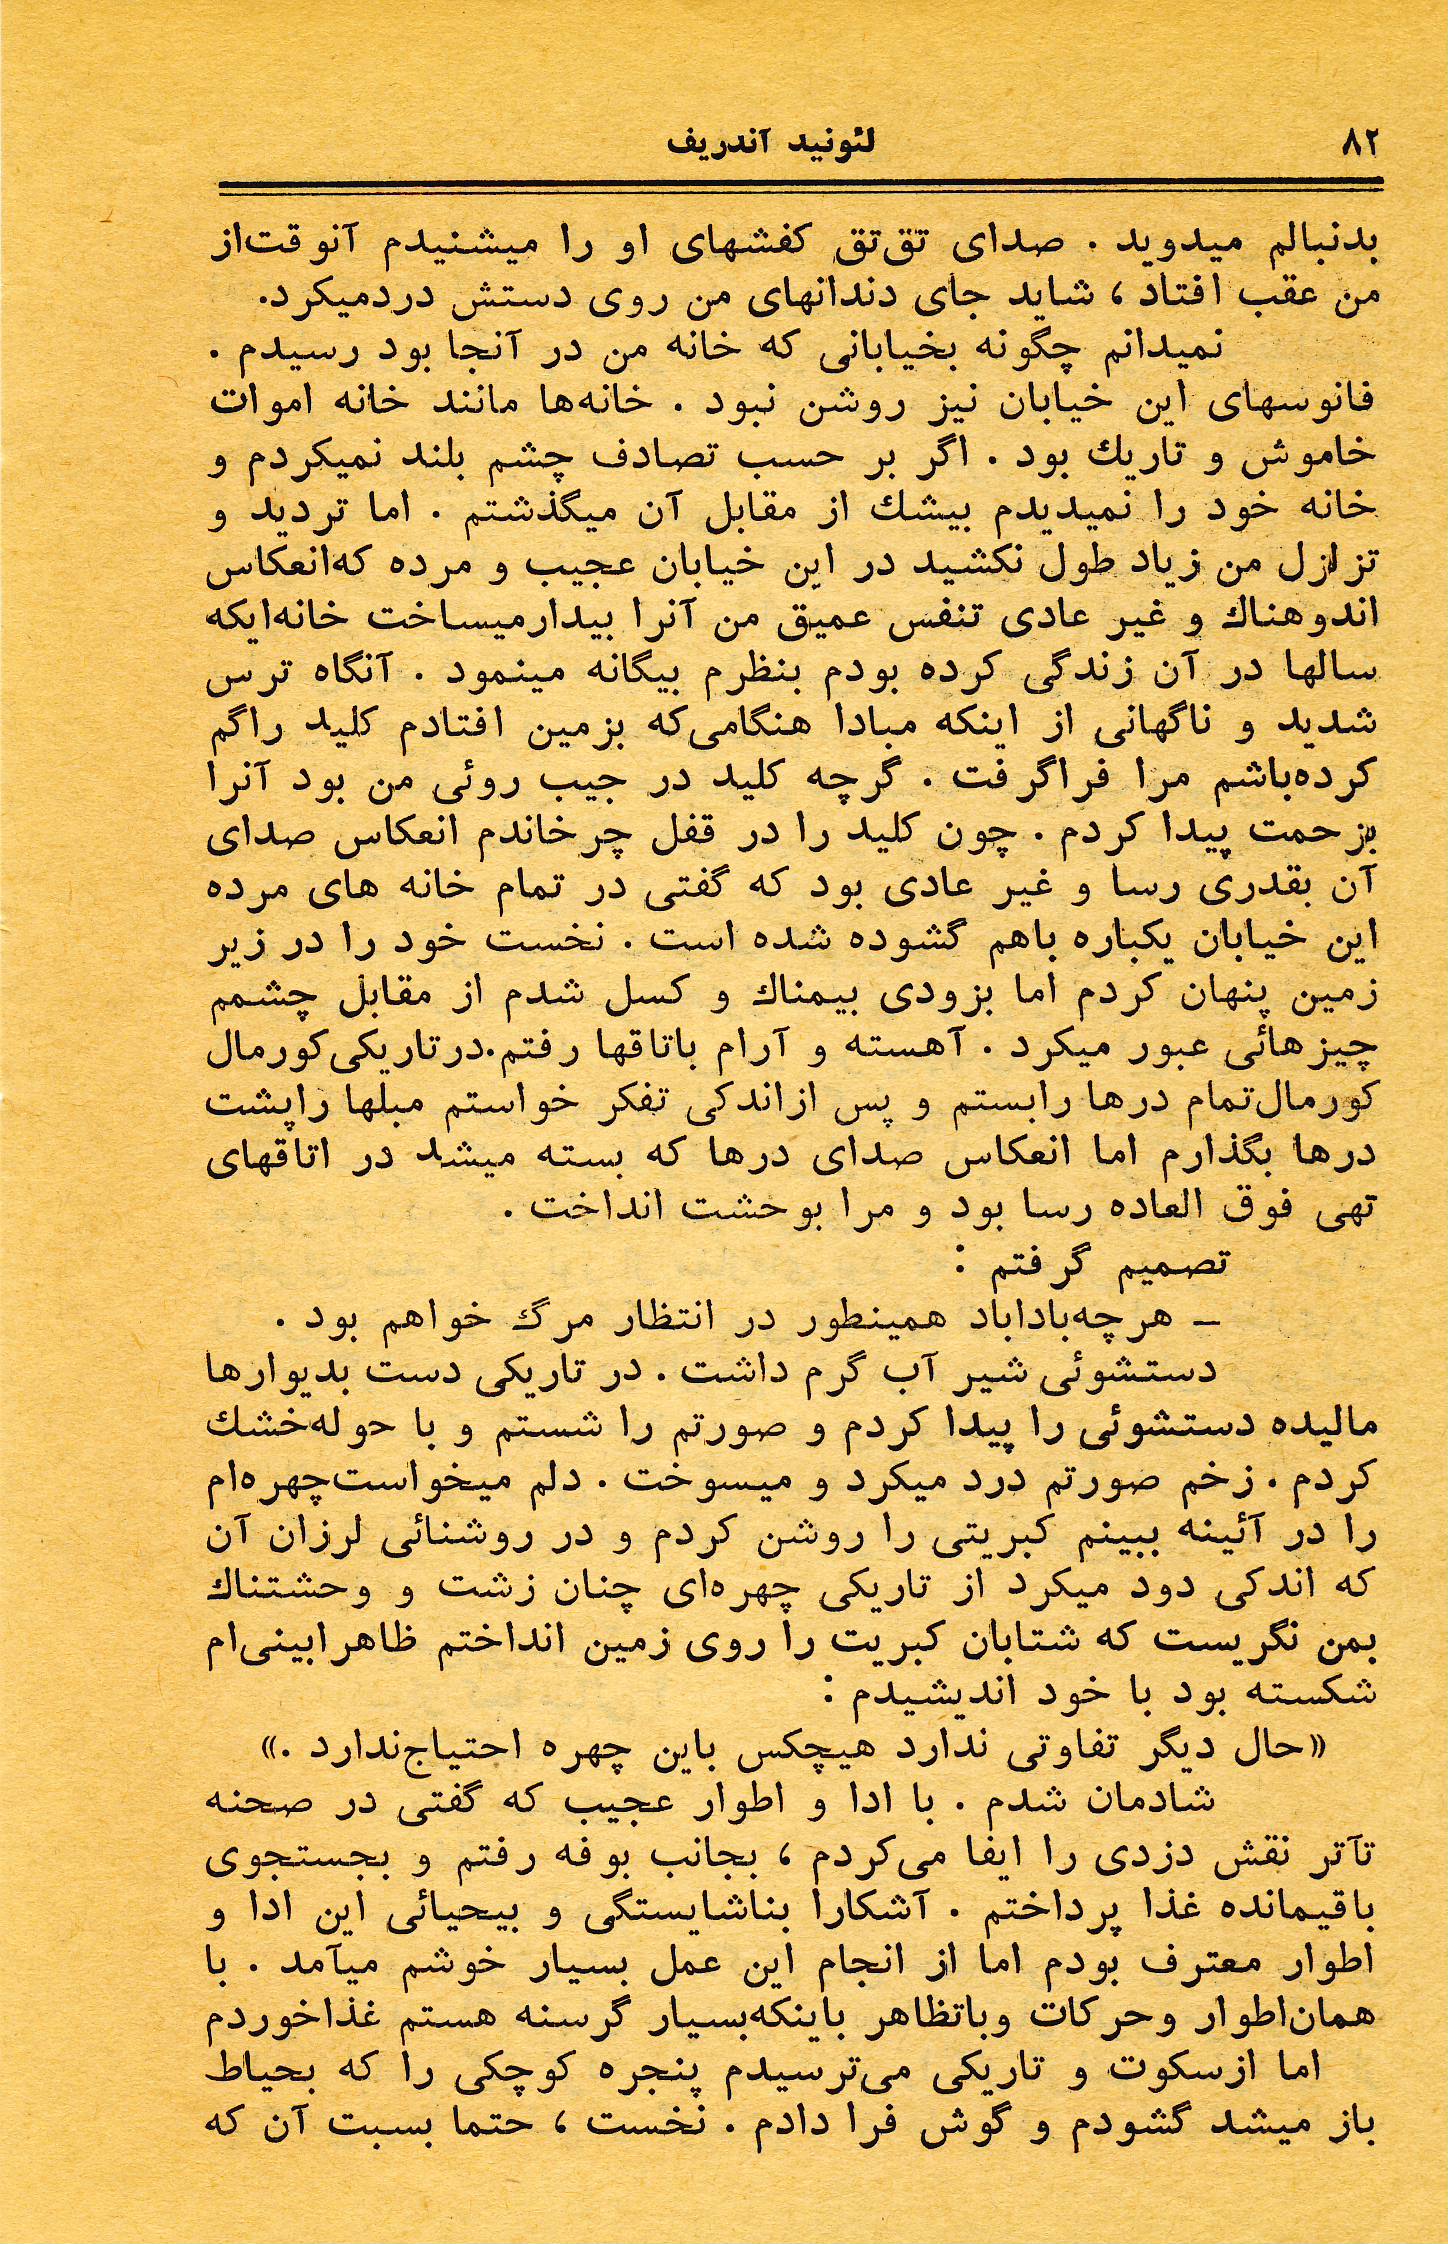 ۸۲
لئونید آندریف
بدنبالم میدوید . صدای تق‌تق کفشهای او را میشنیدم آنوقت‌از
من عقب افتاد ، شاید جای دندانهای من روی دستش دردمیکرد.
نمیدانم چگونه بخیابانی که خانه من در آنجا بود رسیدم .
فانوسهای این خیابان نیز روشن نبود . خانه‌ها مانند خانه اموات
خاموش و تاریك بود . اگر بر حسب تصادف چشم بلند نمیکردم و
خانه خود را نمیدیدم بیشك از مقابل آن میگذشتم . اما تردید و
تزلزل من زیاد طول نکشید در این خیابان عجیب و مرده که‌انعکاس
اندوهناك و غیر عادی تنفس عمیق من آنرا بیدارمیساخت خانه‌ایکه
سالها در آن زندگی کرده بودم بنظرم بیگانه مینمود . آنگاه ترس
شدید و ناگهانی از اینکه مبادا هنگامی‌که بزمین افتادم کلید راگم
کرده‌باشم مرا فراگرفت . گرچه کلید در جیب روئی من بود آنرا
بزحمت پیدا کردم . چون کلید را در قفل چرخاندم انعکاس صدای
آن بقدری رسا و غیر عادی بود که گفتی در تمام خانه های مرده
این خیابان یکباره باهم گشوده شده است . نخست خود را در زیر
زمین پنهان کردم اما بزودی بیمناك و کسل شدم از مقابل چشمم
چیزهائی عبور میکرد . آهسته و آرام باتاقها رفتم.درتاریکی‌کورمال
کورمال‌تمام درها رابستم و پس ازاندکی تفکر خواستم مبلها راپشت
درها بگذارم اما انعکاس صدای درها که بسته میشد در اتاقهای
تهی فوق العاده رسا بود و مرا بوحشت انداخت .
تصمیم گرفتم :
ـ هرچه‌باداباد همینطور در انتظار مرگ خواهم بود .
دستشوئی شیر آب گرم داشت . در تاریکی دست بدیوارها
مالیده دستشوئی را پیدا کردم و صورتم را شستم و با حوله‌خشك
کردم . زخم صورتم درد میکرد و میسوخت . دلم میخواست‌چهره‌ام
را در آئینه ببینم کبریتی را روشن کردم و در روشنائی لرزان آن
که اندکی دود میکرد از تاریکی چهره‌ای چنان زشت و وحشتناك
بمن نگریست که شتابان کبریت را روی زمین انداختم ظاهرابینی‌ام
شکسته بود با خود اندیشیدم :
«حال دیگر تفاوتی ندارد هیچکس باین چهره احتیاج‌ندارد .»
شادمان شدم . با ادا و اطوار عجیب که گفتی در صحنه
تآتر نقش دزدی را ایفا می‌کردم ، بجانب بوفه رفتم و بجستجوی
باقیمانده غذا پرداختم . آشکارا بناشایستگی و بیحیائی این ادا و
اطوار معترف بودم اما از انجام این عمل بسیار خوشم میآمد . با
همان‌اطوار وحرکات وباتظاهر باینکه‌بسیار گرسنه هستم غذاخوردم
اما ازسکوت و تاریکی می‌ترسیدم پنجره کوچکی را که بحیاط
باز میشد گشودم و گوش فرا دادم . نخست ، حتما بسبت آن که